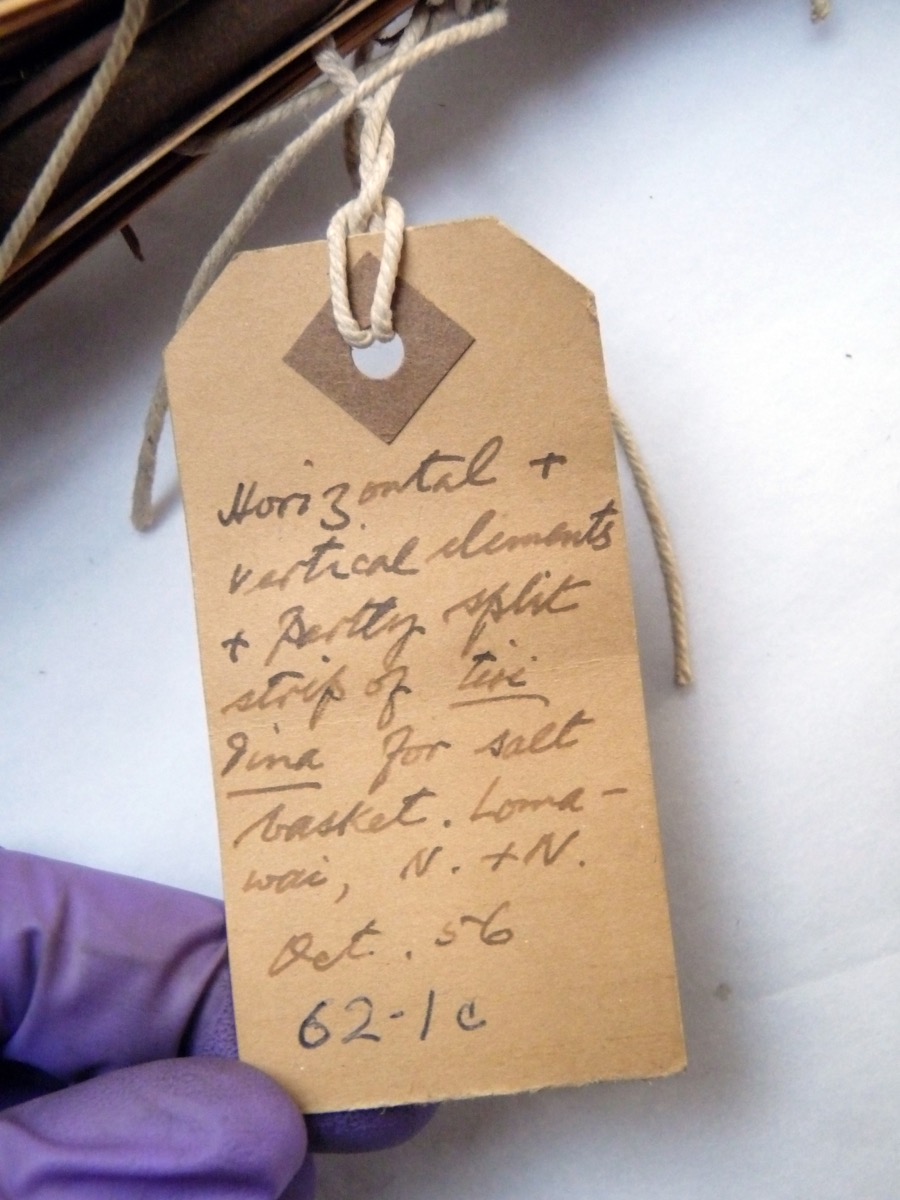 Horizontal +
vertical elements
+ Partly split
strip of tiri
Dina for salt
basket. Loma-
wai, N. + N.
Oct. 56
62-1c